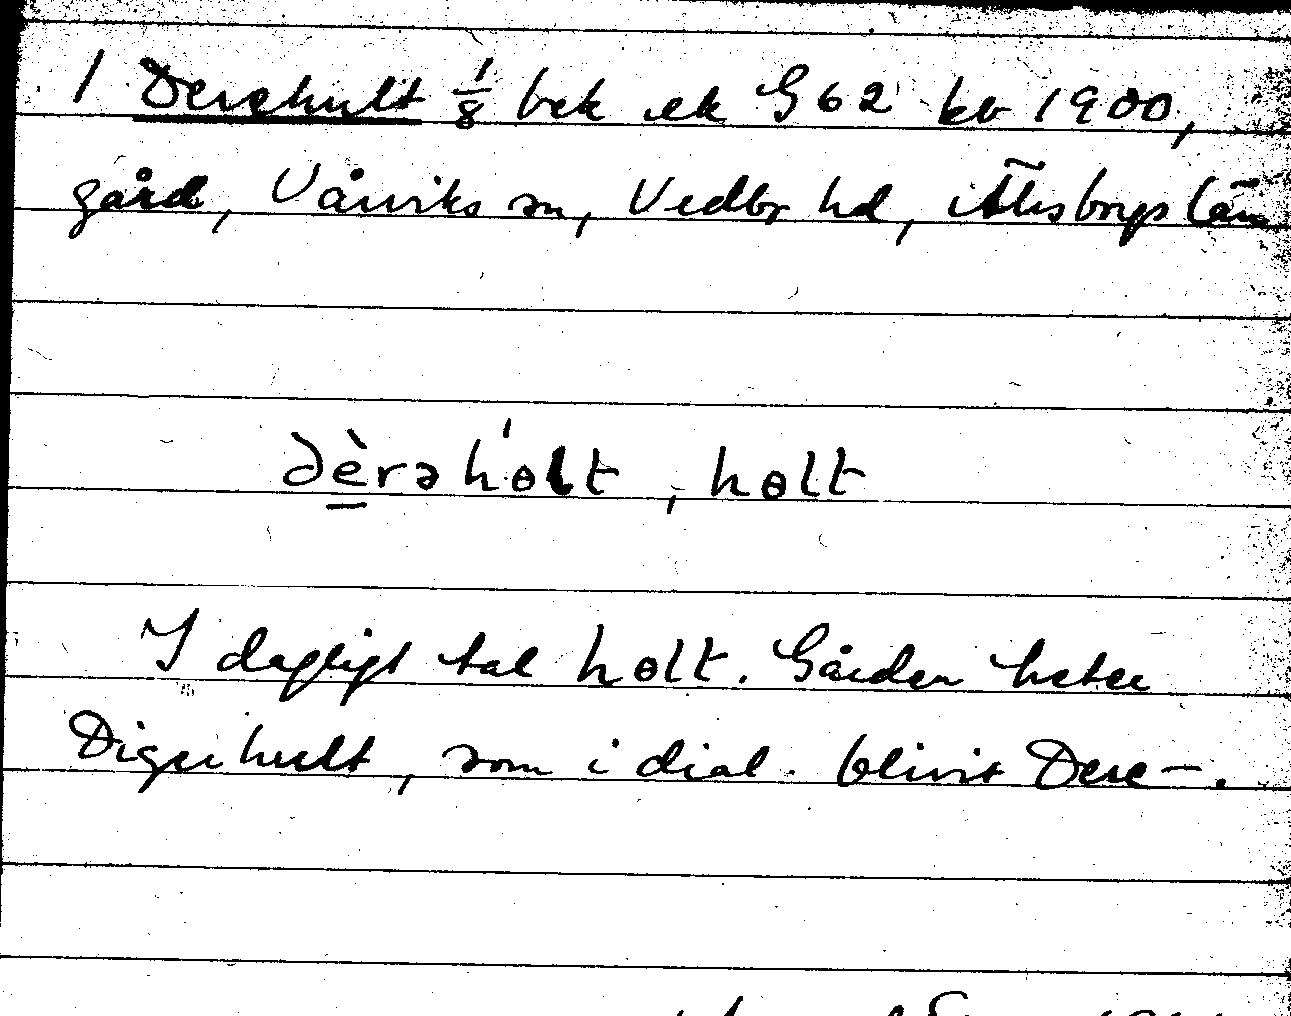 1 Derehult 1/8 bek ek G62 kb 1900,
gård, Vårviks sn, Vedbo hd, i Älvsborgs län
dèrəhɵ́lt, hɵlt
I dagligt tal hɵlt. Gården heter
Digerhult, som i dial. blivit Dere–.